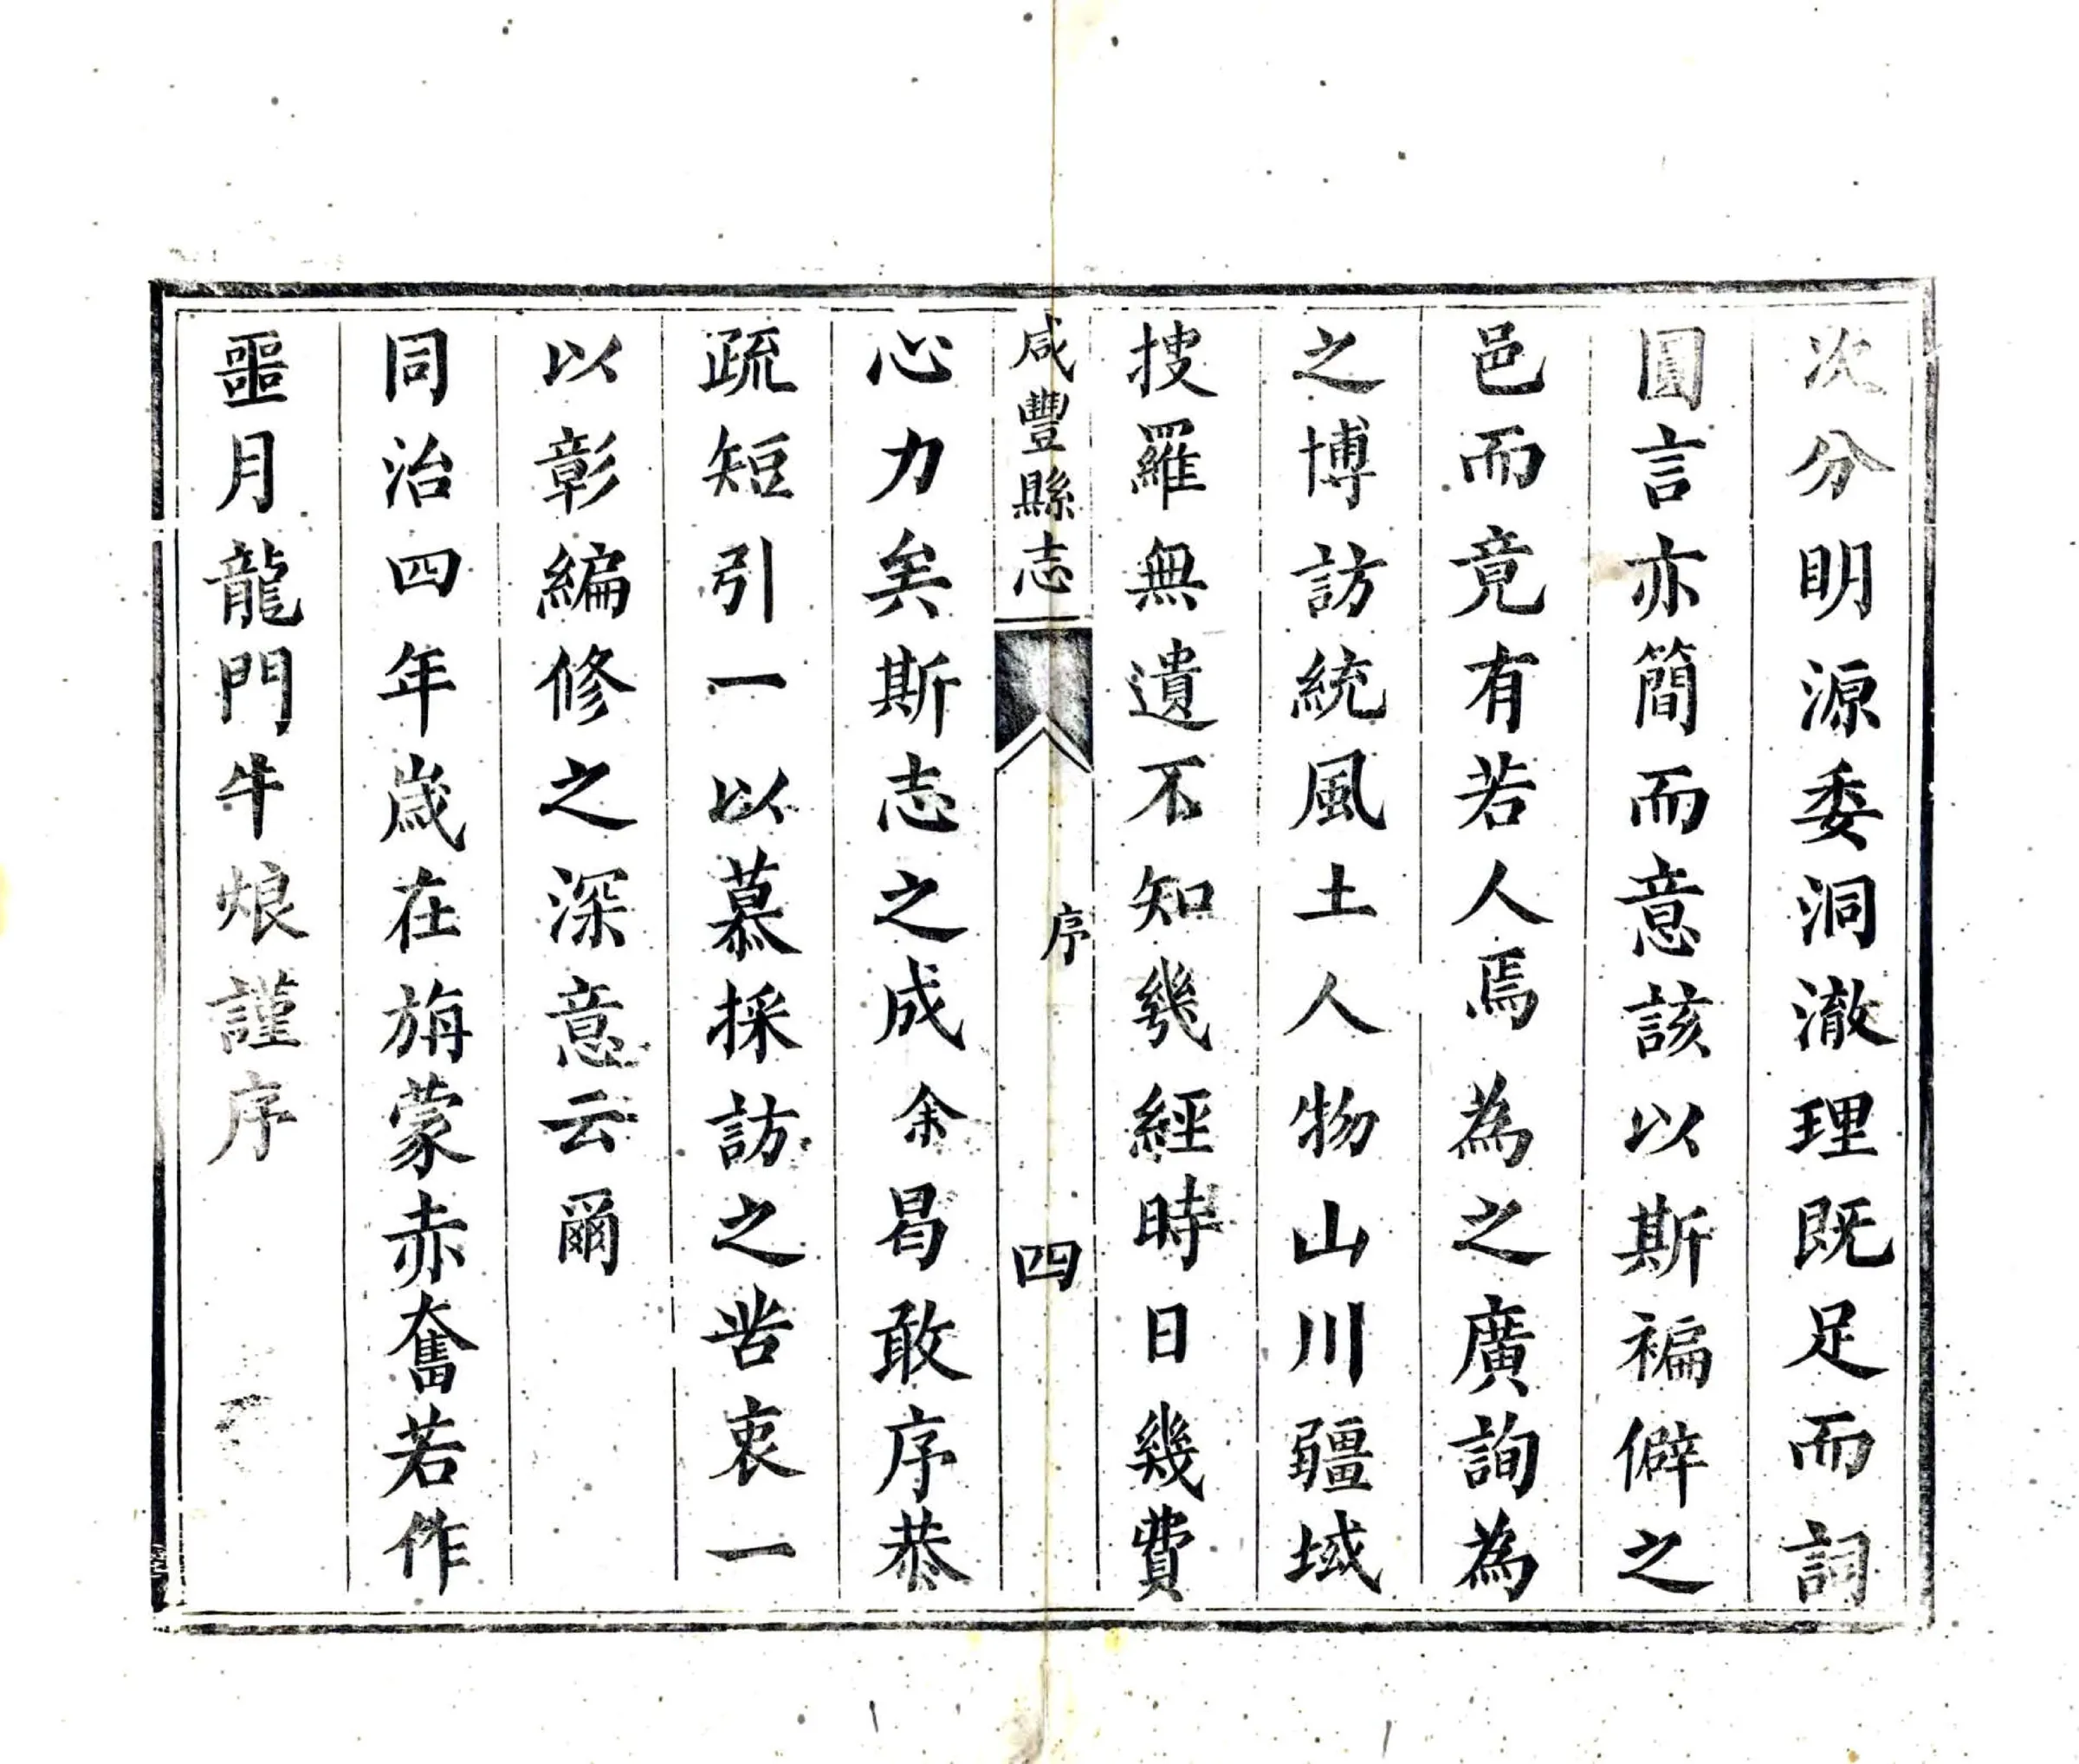 次分明源委洞澈理既足而詞
圓言亦簡而意該以斯褊僻之
邑而竟有若人焉為之廣詢為
之博訪統風土人物山川疆域
搜羅無遺不知幾經時日幾費
咸豐縣志 序 四
心力矣斯志之成余曷敢序恭
疏短引一以慕採訪之苦衷一
以彰編修之深意云爾
同治四年歲在旃蒙赤奮若作
噩月龍門牛烺謹序